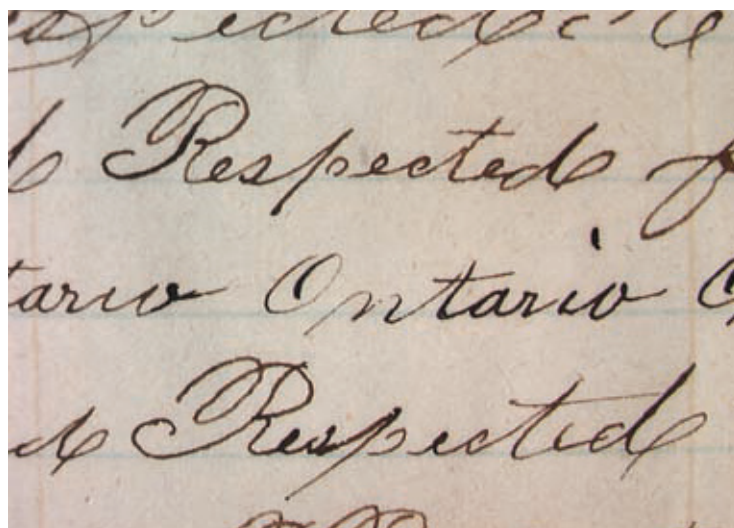 Respected
tario Ontario
Respected